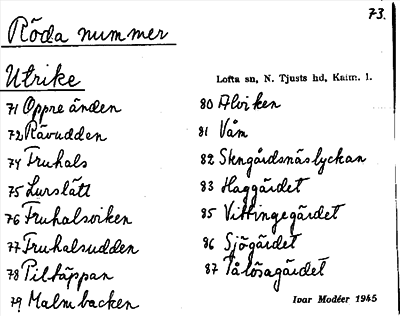 73.
Röda nummer
Utrike
Lofta sn, N. Tjusts hd, Kalm. l.
71 Öppre änden
72 Rävudden
74 Fruhals
75 Lurslätt
76 Fruhalsviken
77 Fruhalsudden
78 Piltäppan
79 Malmbacken
80 Alviken
81 Våm
82 Skogårdsnäslyckan
83 Haggärdet
85 Vittingegärdet
86 Sjögärdet
87 Tålösagärdet
Ivar Modéer 1945